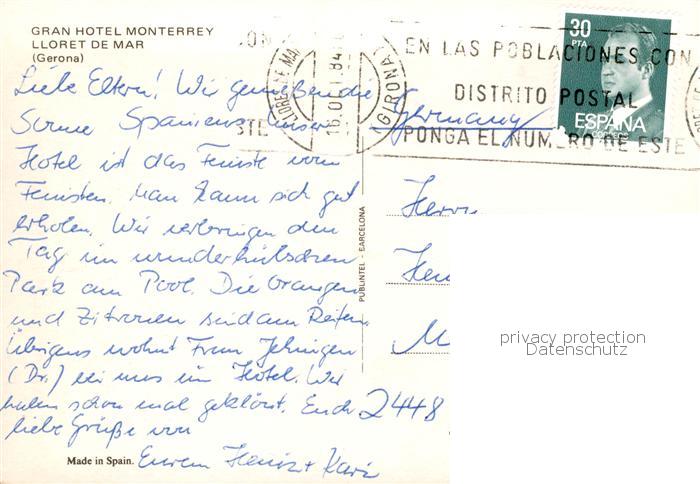 GRAN HOTEL MONTERREY
LLORET DE MAR
(Gerona)
Liebe Eltern! Wir genießen die
Sonne Spaniens, unser
Hotel ist das Feinste vom
Feinsten. Man kann sich gut
erholen. Wir verbringen den
Tag im wunderhübschen
Park am Pool. Die Orangen
und Zitronen sind am Reifen.
Übrigens wohnt Frau
(Dr.) bei uns im Hotel. Wir
haben schon mal geklönt. Euch
liebe Grüße von
Made in Spain.
Euren Heinz + Karin
PUBLINTEL - BARCELONA
LLORET DE MAR
GIRONA
EN LAS POBLACIONES CON
DISTRITO POSTAL
PONGA EL NUMERO DE ESTE
STE
30
PTA
ESPAÑA
Germany
Herrn
M
2448
privacy protection
Datenschutz